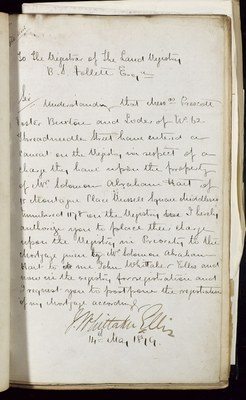 To The Registrar of The Land Registry
B. S. Follett Esqre
Sir
Understanding that Messrs Prescott
Burton and Lodes of No 62
Threadneedle Street have entered a
Caveat on the Registry in respect of a
charge they have upon the property
of Mr Solomon Abraham Hart of
Montague Place Russell Square Middlesex
numbered on the Registry I hereby
authorize you to place their charge
upon the Registry in Priority to the
Mortgage given by Mr Solomon Abraham
Hart to me John Whittaker Ellis and
now in the registry for registration and
I request you to postpone the registration
of my Mortgage accordingly
J Whittaker Ellis
14th May 1879.